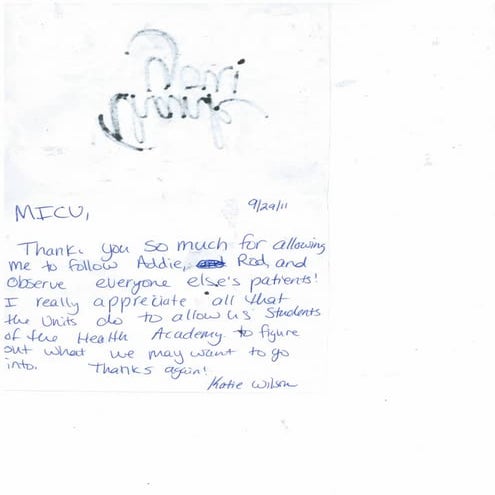 MICU,
9/29/11
Thank you so much for allowing
me to follow Addie, Rod, and
observe everyone else's patients!
I really appreciate all that
the units do to allow us students
of the Health Academy to figure
out what we may want to go
into. Thanks again!
Katie Wilson